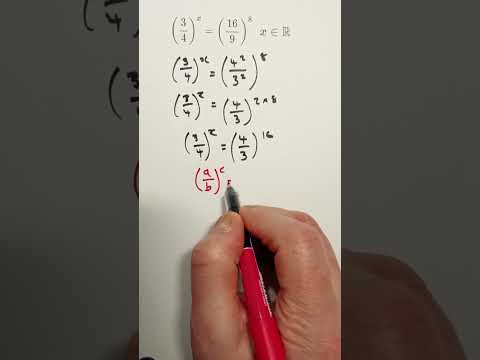 (3/4)^x = (16/9)^8 x ∈ ℝ
(3/4)^x = (4²/3²)^8
(3/4)^x = (4/3)^{2×8}
(3/4)^x = (4/3)^{16}
(a/b)^c